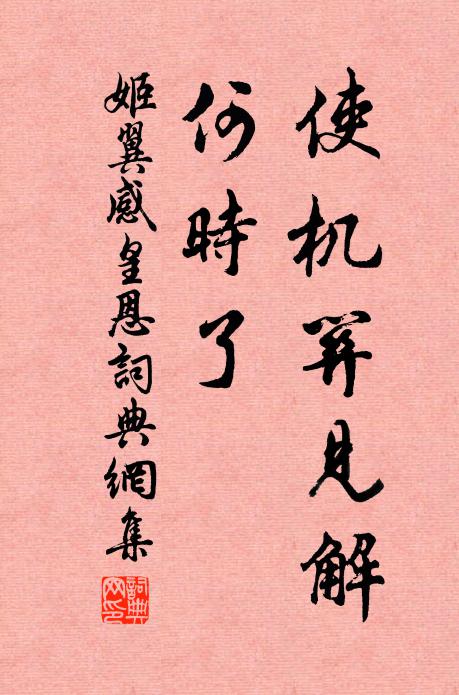 使机關見解
何時了
姬翼感皇恩詞典網集
詞典网印